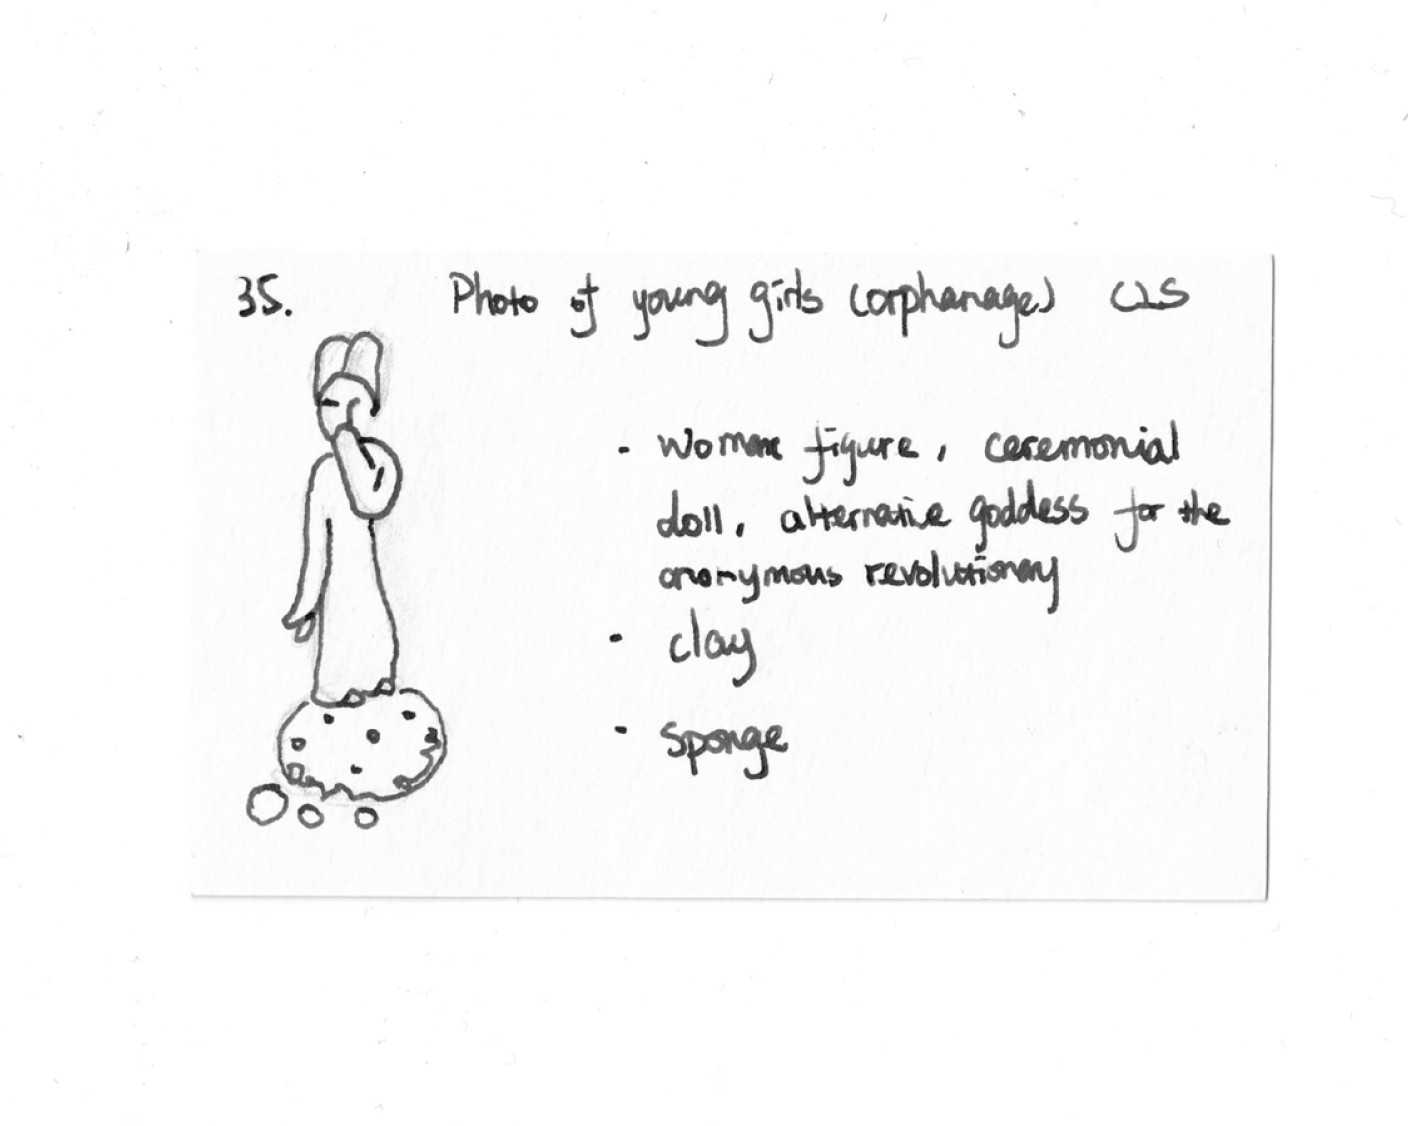 35. Photo of young girls (orphanage) CLS
· women figure, ceremonial
doll, alternative goddess for the
anonymous revolutionary
· clay
· sponge